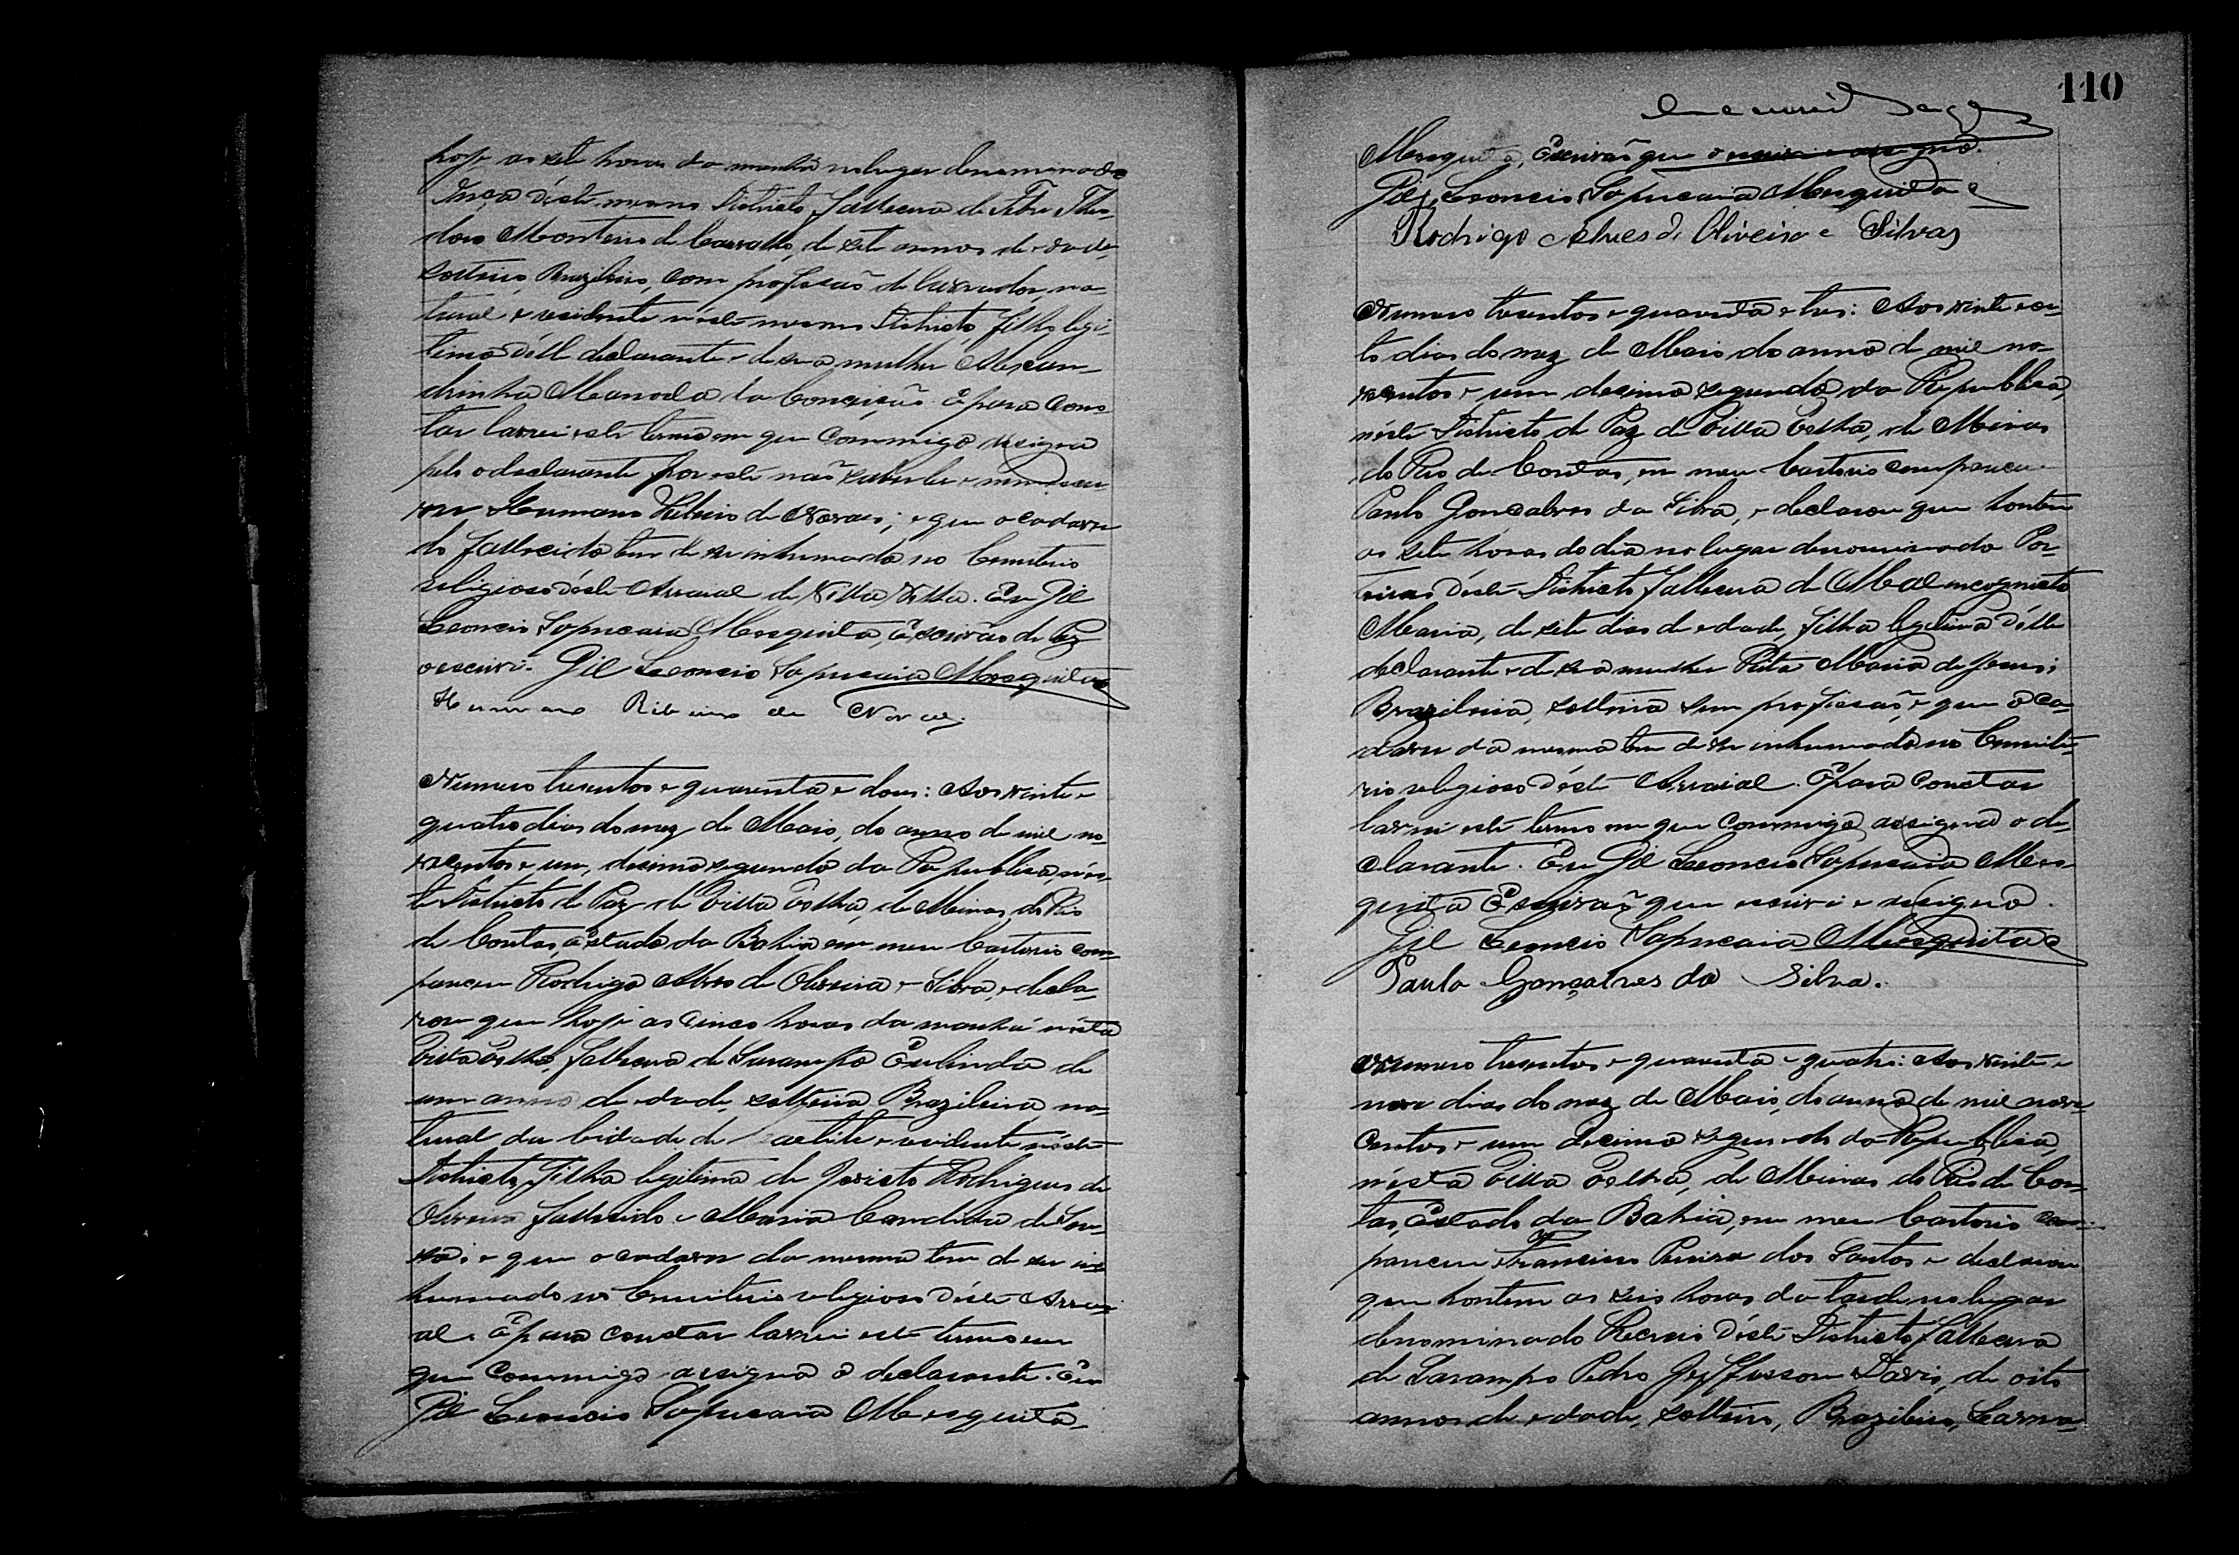 hoje as sete horas da manhã no lugar denominado
déste mesmo Districto falleceu de Febre Theo-
doro Monteiro de Carvalho, de sete annos de edade,
solteiro, Brazileiro, com profissaõ de lavrador, na-
tural e residente néste mesmo Districto, filho legi-
timo délle declarante e de sua mulher Alexan-
drinha Maria da Conceiçaõ. E para cons-
tar lavrei este termo em que commigo assigna
pelo o declarante por este naõ saber ler e nem escre-
ver Humano Ribeiro de Novaes; e que o cadaver
do fallecido tem de ser inhumado no Cemiterio
religioso déste Arraial de Villa Velha. Eu Gil
Leoncio Sapucaia Mesquita, Escrivaõ de Paz
o escrevi. Gil Leoncio Sapucaia Mesquita
Humano Ribeiro de Novaes.
Numero tresentos e quarenta e dous: Aos vinte e
quatro dias do mez de Maio, do anno de mil no-
vecentos e um, decimo segundo da Republica, nés-
te Districto de Paz de Villa Velha, de Minas do Rio
de Contas, Estado da Bahia em meu Cartorio com-
pareceu Rodrigo Alves de Oliveira e Silva, e decla-
rou que hoje as cinco horas da manhã nésta
Villa Velha, falleceu de Sarampo Erlinda de
um anno de edade, solteira Brazileira na-
tural da Cidade de Caetité e residente néste
Districto, filha legitima de Jovicto Rodrigues de
Oliveira fallecido e Maria Candida de Sou-
sa; e que o cadaver da mesma tem de ser in-
humado no Cemiterio religioso déste Arrai-
al. E para constar lavrei este termo em
que commigo assigna o declarante. Eu
Gil Leoncio Sapucaia Mesquita
110
Mesquita, Escrivaõ que o escrevi e assigno.
Gil Leoncio Sapucaia Mesquita
Rodrigo Alves de Oliveira e Silva
Numero tresentos e quarenta e tres: Aos vinte e oi-
to dias do mez de Maio do anno de mil no-
vecentos e um decimo segundo da Republica,
néste Districto de Paz de Villa Velha, de Minas
do Rio de Contas, em meu Cartorio compareceu
Paulo Gonçalves da Silva, e declarou que hontem
as sete horas do dia no lugar denominado Por-
teiras déste Districto falleceu de Mal incognito
Maria, de sete dias de edade, filha legitima délle
declarante e de sua mulher Rita Maria de Jesus;
Brazileira, solteira sem profissaõ, e que o ca-
daver da mesma tem de ser inhumado no Cemite-
rio religioso déste Arraial. E para constar
lavrei este termo em que commigo assigna o de-
clarante. Eu Gil Leoncio Sapucaia Mes-
quita Escrivaõ que escrevi e assigno.
Gil Leoncio Sapucaia Mesquita
Paulo Gonçalves da Silva.
Numero tresentos e quarenta e quatro: Aos vinte e
nove dias do mez de Maio, do anno de mil nove-
centos e um decimo segundo da Republica,
nésta Villa Velha, de Minas do Rio de Con-
tas, Estado da Bahia, em meu Cartorio com-
pareceu Francisco Pereira dos Santos e declarou
que hontem as seis horas da tarde no lugar
denominado Recreio déste Districto falleceu
de Sarampo Pedro Jeffferson Davis, de oito
annos de edade, solteiro, Brazileiro, Lavra-